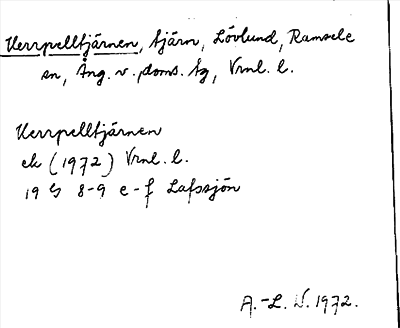 Kerrpelltjärnen, tjärn, Lövlund, Ramsele
sn, Ång. v. doms. tg, Vrml. l.
Kerrpelltjärnen
ek (1972) Vrml. l.
19 G 8-9 e-f Lafssjön
A.-L. N. 1972.